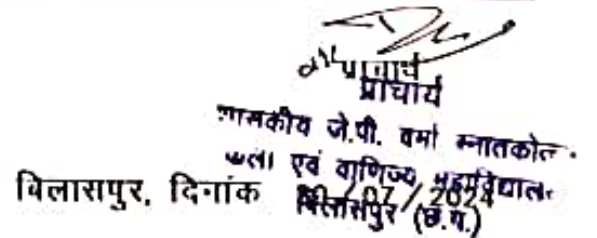 प्राचार्य
प्राचार्य
शासकीय जे.पी. वर्मा स्नातकोत्त.
कला एवं वाणिज्य महाविद्यालय
बिलासपुर, दिनांक /07/2024
बिलासपुर (छ.ग.)